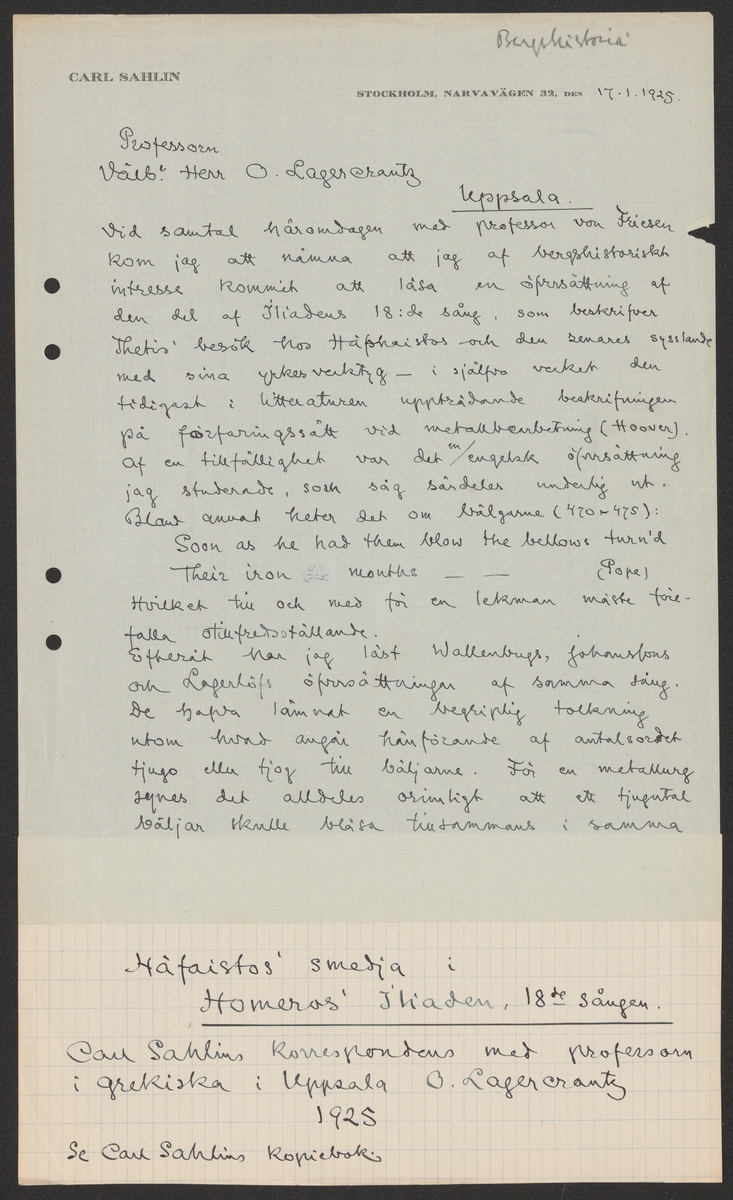 Bergshistoria
CARL SAHLIN
STOCKHOLM, NARVAVÄGEN 32, DEN 17.1.1925.
Professorn
Välb. Herr O. Lagercrantz
Uppsala.
Vid samtal häromdagen med professor von Friesen
kom jag att nämna att jag af bergshistoriskt
intresse kommit att läsa en öfversättning af
den del af Iliadens 18:de sång, som beskrifver
Thetis' besök hos Häphaistos och den senares sysslande
med sina yrkesverktyg — i själfva verket den
tidigast i litteraturen uppträdande beskrifningen
på förfaringssätt vid metallbearbetning (Hoover).
Af en tillfällighet var det en engelsk öfversättning
jag studerade, som såg särdeles underlig ut.
Bland annat heter det om bälgarne (470-475):
Soon as he had them blow the bellows turn'd
Their iron months — — (Pope)
Hvilket till och med för en lekman måste före-
falla otillfredsställande.
Efteråt har jag läst Wallenbergs, Johanssons
och Lagerlöfs öfversättningar af samma sång.
De hafva lämnat en begriplig tolkning
utom hvad angår hänförande af antalsordet
tjugo eller tjog till bäljarne. För en metallurg
synes det alldeles orimligt att ett tjugutal
bäljar skulle blåsa tillsammans i samma
Häfaistos' smedja i
Homeros' Iliaden, 18de sången.
Carl Sahlins korrespondens med professorn
i grekiska i Uppsala O. Lagercrantz
1925
Se Carl Sahlins kopiebok